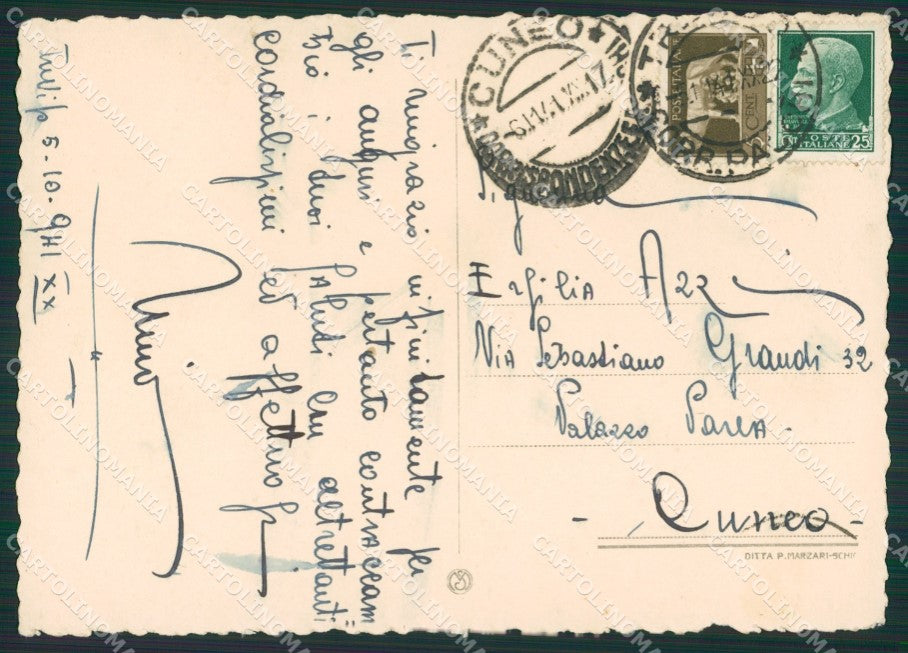 5-10-941 XX
Ti ringrazio infinitamente per
gli auguri e pertanto contraccam=
bio i tuoi saluti con altrettanti
cordialissimi ed affettuosi
CUNEO
CORRISPONDENZE
6.11.41.XX.17
POSTE ITALIANE
CENT
POSTE
ITALIANE 25
Signorina
Ersilia Azzi
Via Sebastiano Grandi 32
Palazzo Parea-
- Cuneo -
DITTA P. MARZARI-SCHI
CARTOLINOMANIA